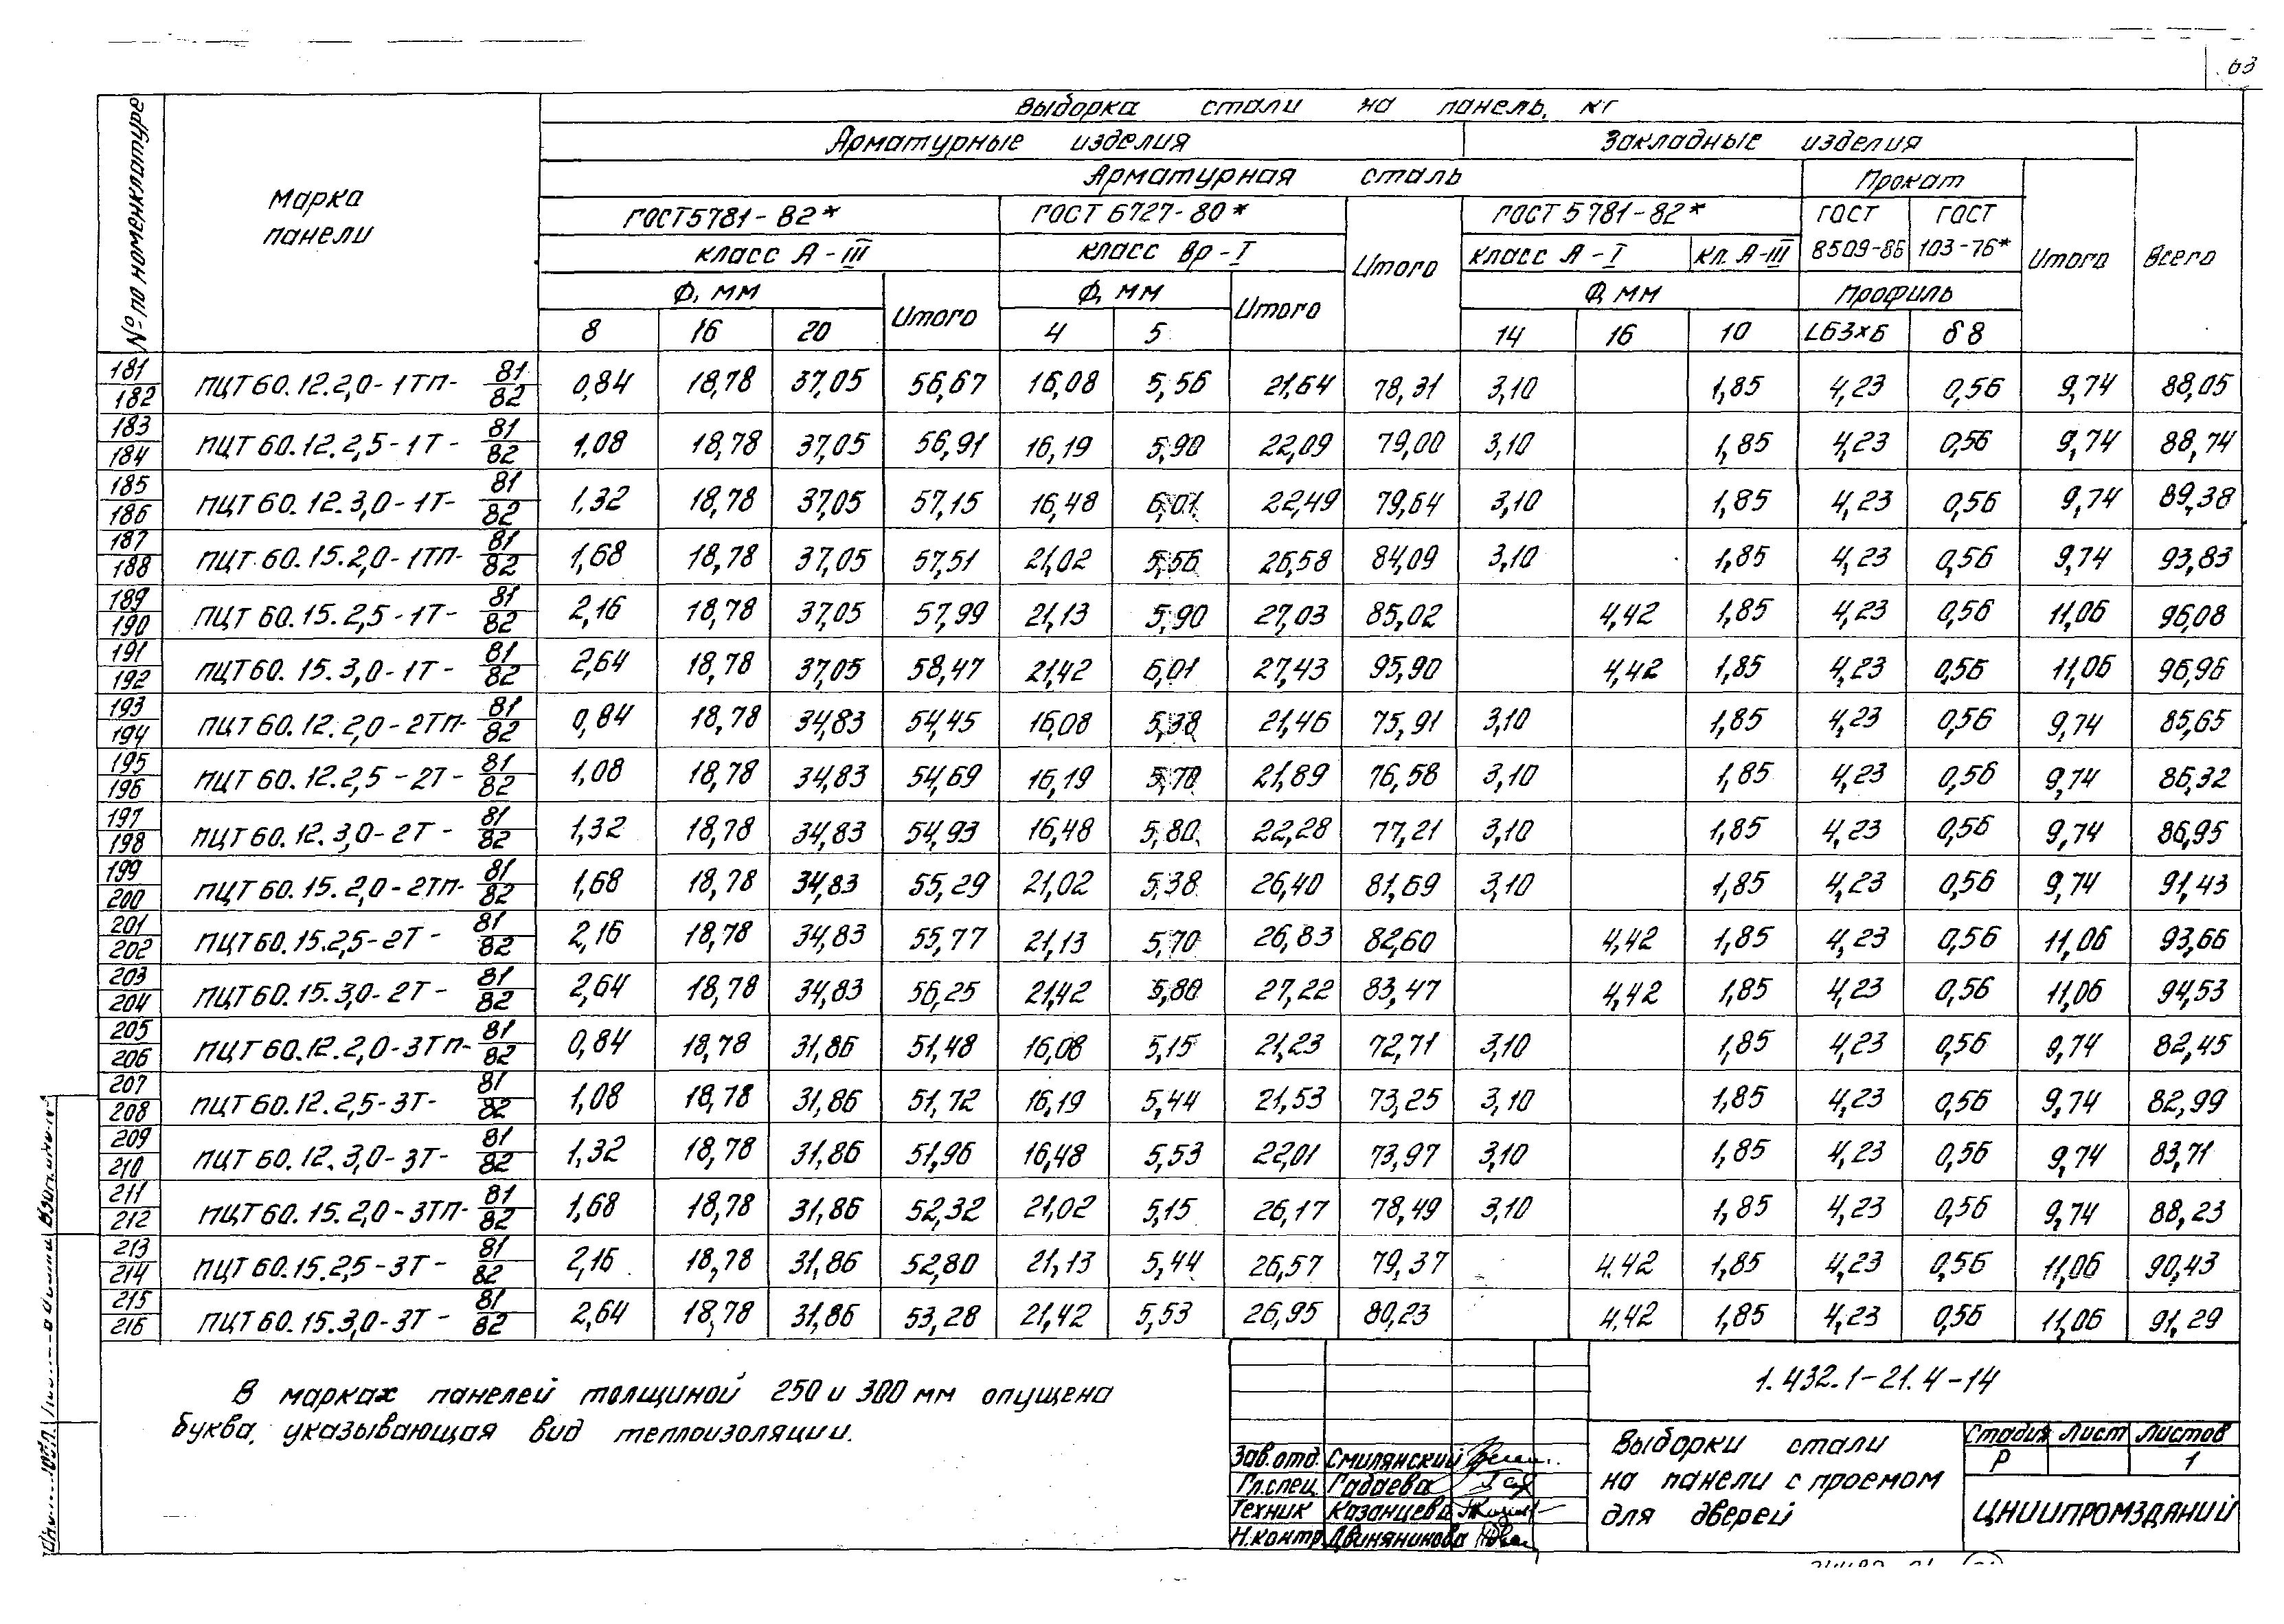 63
Выборка стали на панель, кг
Арматурные изделия Закладные изделия
№ по номенклатуре
Марка панели
Арматурная сталь Прокат
ГОСТ 5781-82* ГОСТ 6727-80* Итого ГОСТ 5781-82* ГОСТ 8509-86 ГОСТ 103-76* Итого Всего
класс А-III класс Вр-I класс А-I кл. А-III
Ф, мм Итого Ф, мм Итого Ф, мм Профиль
8 16 20 4 5 14 16 10 L63×6 δ8
181 182 ПЦТ 60.12.2,0-1ТП- 81/82 0,84 18,78 37,05 56,67 16,08 5,56 21,64 78,31 3,10 1,85 4,23 0,56 9,74 88,05
183 184 ПЦТ 60.12.2,5-1Т- 81/82 1,08 18,78 37,05 56,91 16,19 5,90 22,09 79,00 3,10 1,85 4,23 0,56 9,74 88,74
185 186 ПЦТ 60.12.3,0-1Т- 81/82 1,32 18,78 37,05 57,15 16,48 6,01 22,49 79,64 3,10 1,85 4,23 0,56 9,74 89,38
187 188 ПЦТ 60.15.2,0-1ТП- 81/82 1,68 18,78 37,05 57,51 21,02 5,56 26,58 84,09 3,10 1,85 4,23 0,56 9,74 93,83
189 190 ПЦТ 60.15.2,5-1Т- 81/82 2,16 18,78 37,05 57,99 21,13 5,90 27,03 85,02 4,42 1,85 4,23 0,56 11,06 96,08
191 192 ПЦТ 60.15.3,0-1Т- 81/82 2,64 18,78 37,05 58,47 21,42 6,01 27,43 95,90 4,42 1,85 4,23 0,56 11,06 96,96
193 194 ПЦТ 60.12.2,0-2ТП- 81/82 0,84 18,78 34,83 54,45 16,08 5,38 21,46 75,91 3,10 1,85 4,23 0,56 9,74 85,65
195 196 ПЦТ 60.12.2,5-2Т- 81/82 1,08 18,78 34,83 54,69 16,19 5,70 21,89 76,58 3,10 1,85 4,23 0,56 9,74 86,32
197 198 ПЦТ 60.12.3,0-2Т- 81/82 1,32 18,78 34,83 54,93 16,48 5,80 22,28 77,21 3,10 1,85 4,23 0,56 9,74 86,95
199 200 ПЦТ 60.15.2,0-2ТП- 81/82 1,68 18,78 34,83 55,29 21,02 5,38 26,40 81,69 3,10 1,85 4,23 0,56 9,74 91,43
201 202 ПЦТ 60.15.2,5-2Т- 81/82 2,16 18,78 34,83 55,77 21,13 5,70 26,83 82,60 4,42 1,85 4,23 0,56 11,06 93,66
203 204 ПЦТ 60.15.3,0-2Т- 81/82 2,64 18,78 34,83 56,25 21,42 5,80 27,22 83,47 4,42 1,85 4,23 0,56 11,06 94,53
205 206 ПЦТ 60.12.2,0-3ТП- 81/82 0,84 18,78 31,86 51,48 16,08 5,15 21,23 72,71 3,10 1,85 4,23 0,56 9,74 82,45
207 208 ПЦТ 60.12.2,5-3Т- 81/82 1,08 18,78 31,86 51,72 16,19 5,44 21,53 73,25 3,10 1,85 4,23 0,56 9,74 82,99
209 210 ПЦТ 60.12.3,0-3Т- 81/82 1,32 18,78 31,86 51,96 16,48 5,53 22,01 73,97 3,10 1,85 4,23 0,56 9,74 83,71
211 212 ПЦТ 60.15.2,0-3ТП- 81/82 1,68 18,78 31,86 52,32 21,02 5,15 26,17 78,49 3,10 1,85 4,23 0,56 9,74 88,23
213 214 ПЦТ 60.15.2,5-3Т- 81/82 2,16 18,78 31,86 52,80 21,13 5,44 26,57 79,37 4,42 1,85 4,23 0,56 11,06 90,43
215 216 ПЦТ 60.15.3,0-3Т- 81/82 2,64 18,78 31,86 53,28 21,42 5,53 26,95 80,23 4,42 1,85 4,23 0,56 11,06 91,29
В марках панелей толщиной 250 и 300 мм опущена
буква, указывающая вид теплоизоляции.
1.432.1-21.4-14
Зав.отд. Смилянский
Гл.спец. Гадаева
Техник Казанцева
Н.контр. Двинянинова
Выборки стали
на панели с проемом
для дверей
Стадия Лист Листов
Р 1
ЦНИИПРОМЗДАНИЙ